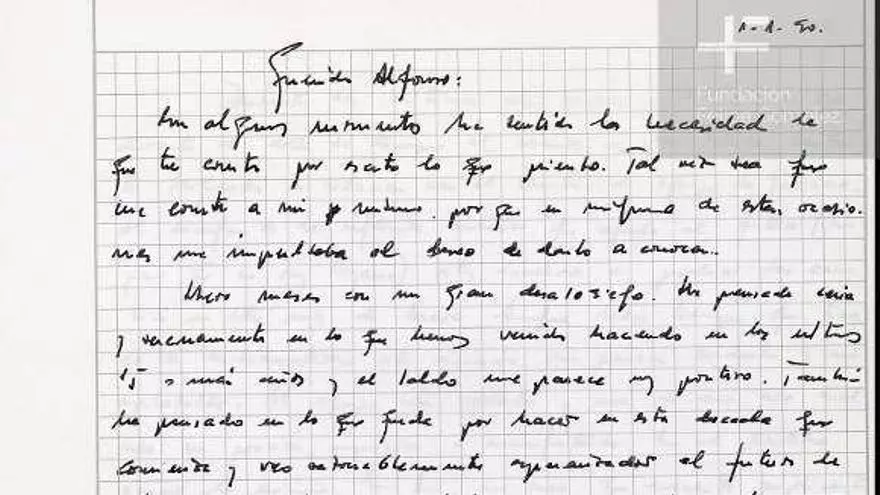 1-1-90.
Fundación
Querido Alfonso:
En algunos momentos he sentido la necesidad de
que te conste por escrito lo que pienso. Tal vez sea que
me conste a mi mismo, porque en ninguna de estas ocasio-
nes me impulsaba el deseo de darlo a conocer.
Llevo meses con un gran desasosiego. He pensado seria
y serenamente en lo que hemos venido haciendo en los ultimos
15 o más años y el saldo me parece muy positivo. También
he pensado en lo que queda por hacer en esta decada que
comienza y veo razonablemente esperanzador el futuro de